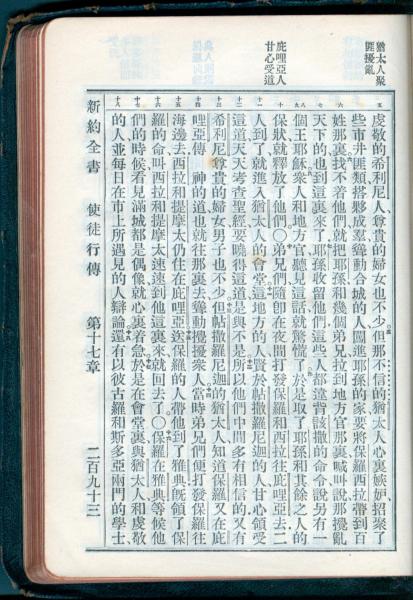 猶太人聚
匪擾亂
庇哩亞人
甘心受道
虔敬的希利尼人、尊貴的婦女也不少但那不信的猶太人心裏嫉妒招聚了
些市井匪類搭夥成羣聳動合城的人闖進耶孫的家要將保羅西拉帶到百
姓那裏找不着他們就把耶孫和幾個弟兄拉到地方官那裏喊叫說那攪亂
天下的也到這裏來了耶孫收留他們這些人都違背該撒的命令說另有一
個王耶穌衆人和地方官聽見這話就驚慌了於是取了耶孫和其餘之人的
保狀就釋放了他們○弟兄們隨卽在夜間打發保羅和西拉往庇哩亞去二
人到了就進入猶太人的會堂這地方的人賢於帖撒羅尼迦的人甘心領受
這道天天考查聖經要曉得這道是與不是所以他們中間多有相信的又有
希利尼尊貴的婦女男子也不少但帖撒羅尼迦的猶太人知道保羅又在庇
哩亞傳 神的道也就往那裏去聳動攪擾衆人當時弟兄們便打發保羅往
海邊去西拉和提摩太仍住在庇哩亞送保羅的人帶他到了雅典旣領了保
羅的命叫西拉和提摩太速速到他這裏來就回去了○保羅在雅典等候他
們的時候看見滿城都是偶像就心裏着急於是在會堂裏與猶太人和虔敬
的人並每日在市上所遇見的人辯論還有以彼古羅和斯多亞兩門的學士
新約全書 使徒行傳 第十七章 二百九十三